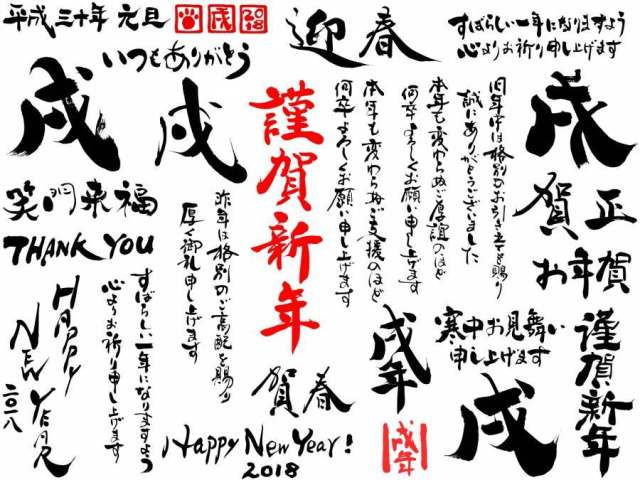 平成三十年 元旦
戌
2018
迎春
すばらしい一年になりますよう
心よりお祈り申し上げます
いつもありがとう
戌
戌
謹賀新年
本年も変わらぬご支援のほど
何卒よろしくお願い申し上げます
本年も変わらぬご厚誼のほど
何卒よろしくお願い申し上げます
旧年中は格別のお引き立てを賜り
誠にありがとうございました
戌
賀正
お年賀
笑門来福
THANK YOU
昨年は格別のご高配を賜り
厚く御礼申し上げます
HAPPY
NEW YEAR
二〇一八
すばらしい一年になりますよう
心よりお祈り申し上げます
賀春
戌年
寒中お見舞い
申し上げます
謹賀新年
戌
戌年
Happy New Year!
2018